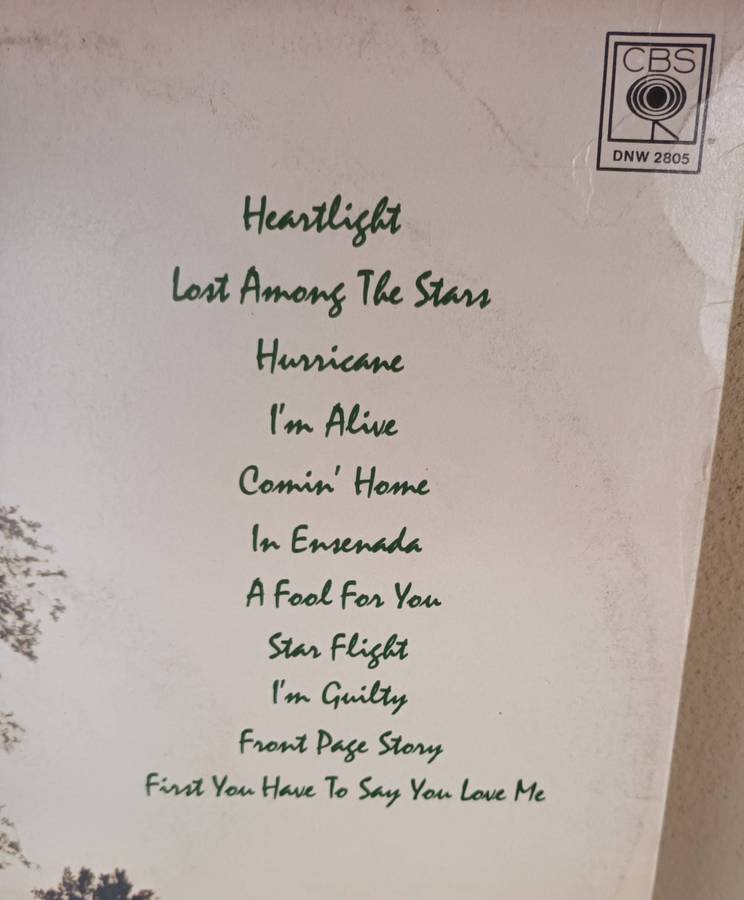 CBS
DNW 2805
Heartlight
Lost Among The Stars
Hurricane
I'm Alive
Comin' Home
In Ensenada
A Fool For You
Star Flight
I'm Guilty
Front Page Story
First You Have To Say You Love Me